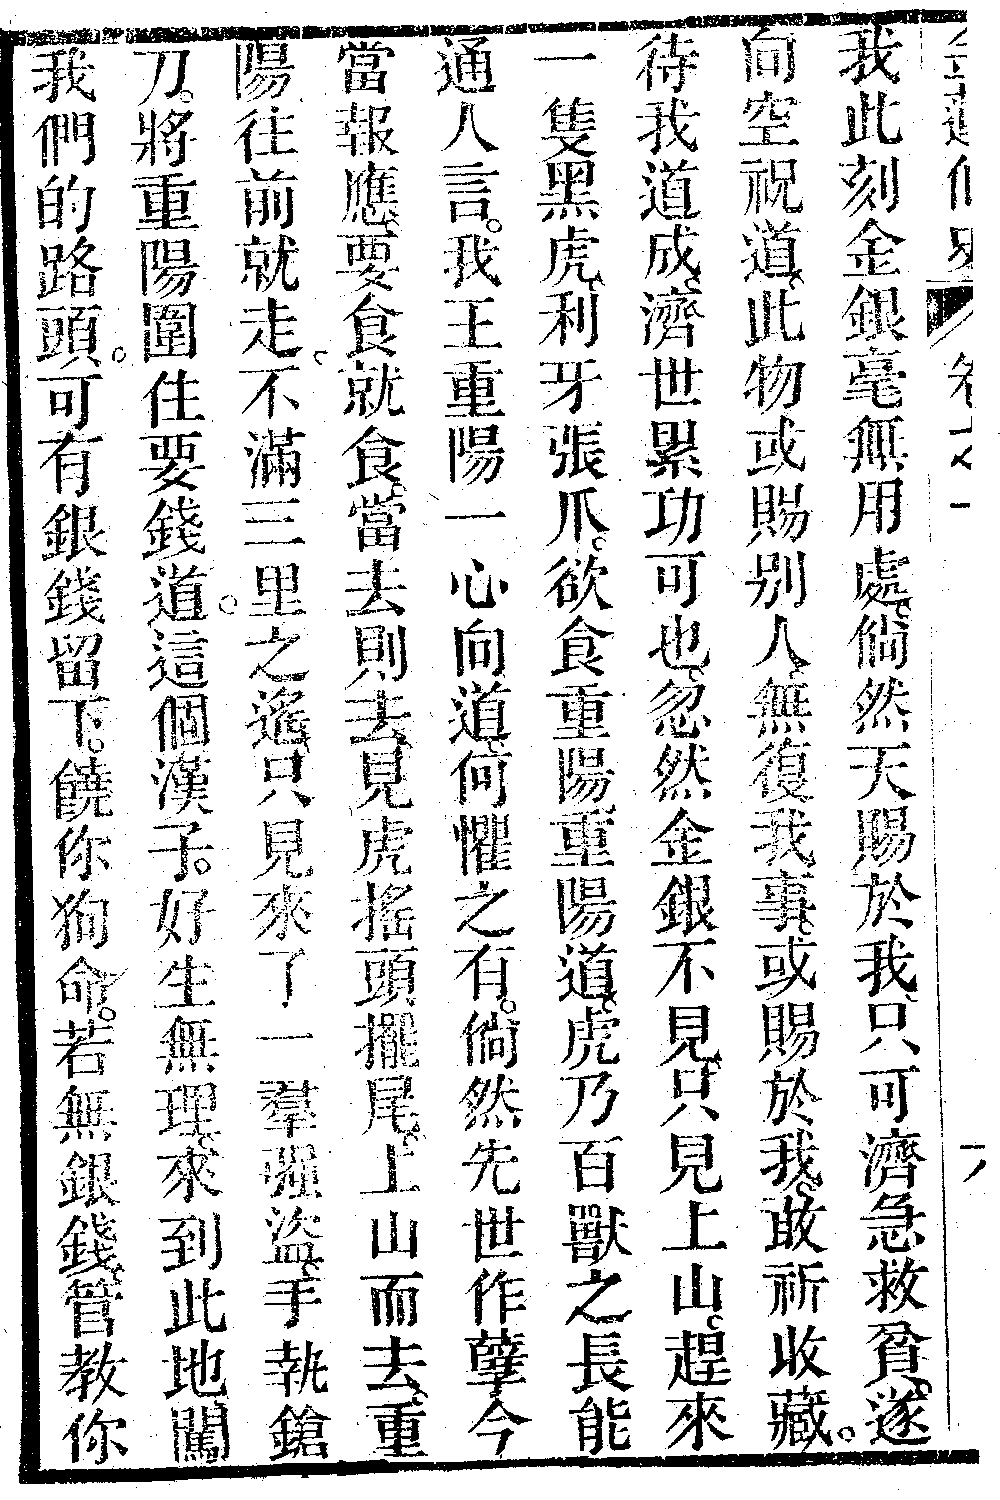 我此刻金銀毫無用處倘然天賜於我只可濟急救貧遂
向空祝道此物或賜别人無復我事或賜於我敢祈收藏。
待我道成濟世累功可也忽然金銀不見只見上山趕來
一隻黑虎利牙張爪欲食重陽重陽道虎乃百獸之長能
通人言。我王重陽一心向道何懼之有。倘然先世作孽今
當報應要食就食當去則去見虎搖頭擺尾上山而去重
陽往前就走不滿三里之遙只見來了一羣强盜手執鎗
刀。將重陽圍住要錢道。這個漢子。好生無理來到此地闖
我們的路頭。可有銀錢留下。饒你狗命。若無銀錢管教你